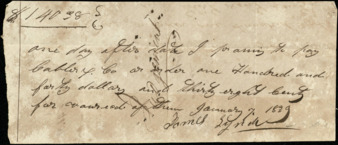 $140.38
one day after date I promis to pay
Cables & Co or order one Hundred and
forty dollars and thirty eight Cents
for value recd of them January 1839
James